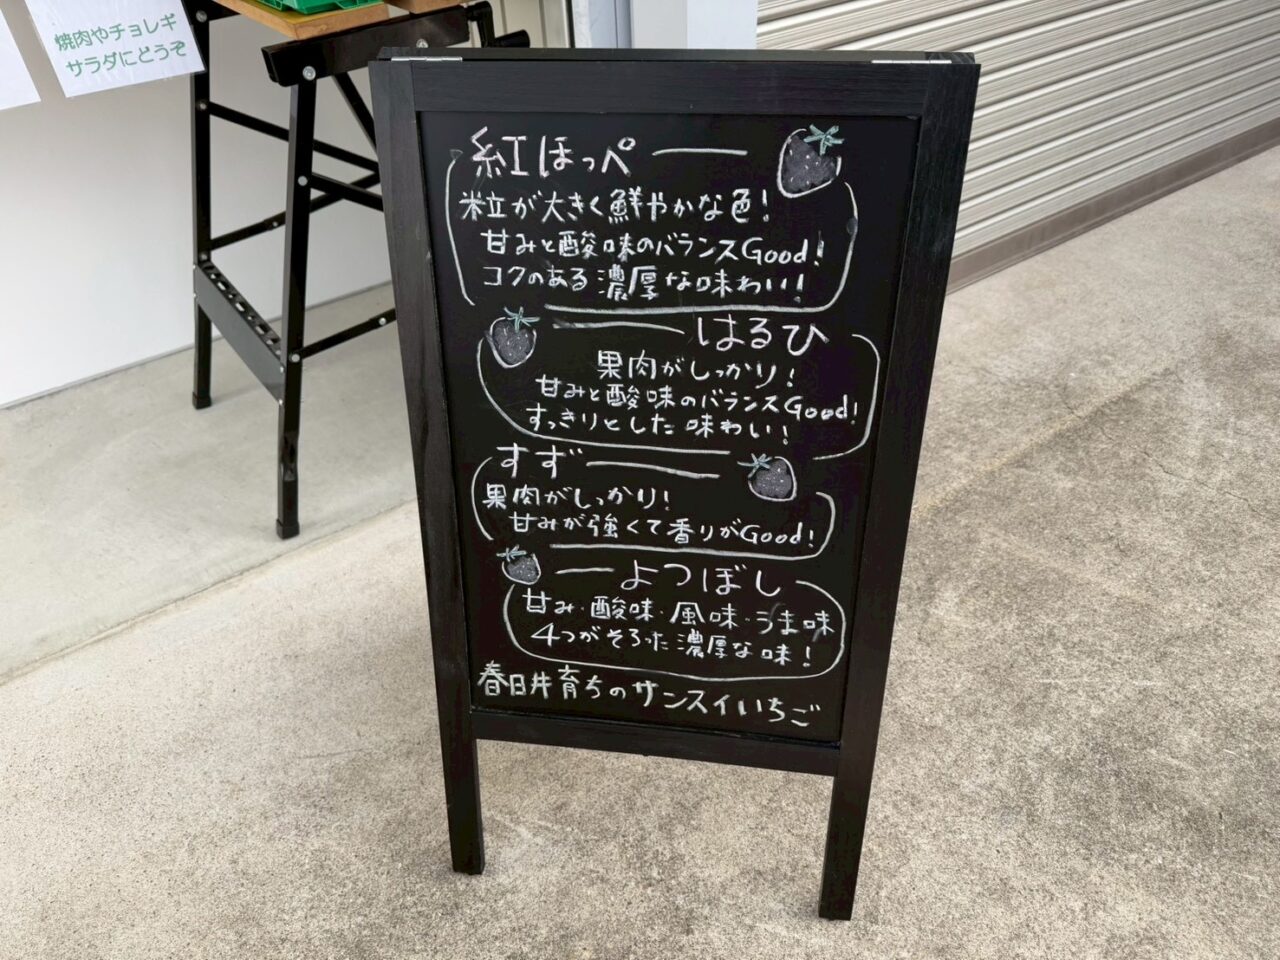 焼肉やチョレギ
サラダにどうぞ
紅ほっぺ
粒が大きく鮮やかな色!
甘みと酸味のバランスGood!
コクのある濃厚な味わい!
はるひ
果肉がしっかり!
甘みと酸味のバランスGood!
すっきりとした味わい!
すず
果肉がしっかり!
甘みが強くて香りがGood!
よつぼし
甘み・酸味・風味・うま味
4つがそろった濃厚な味!
春日井育ちのサンスイいちご